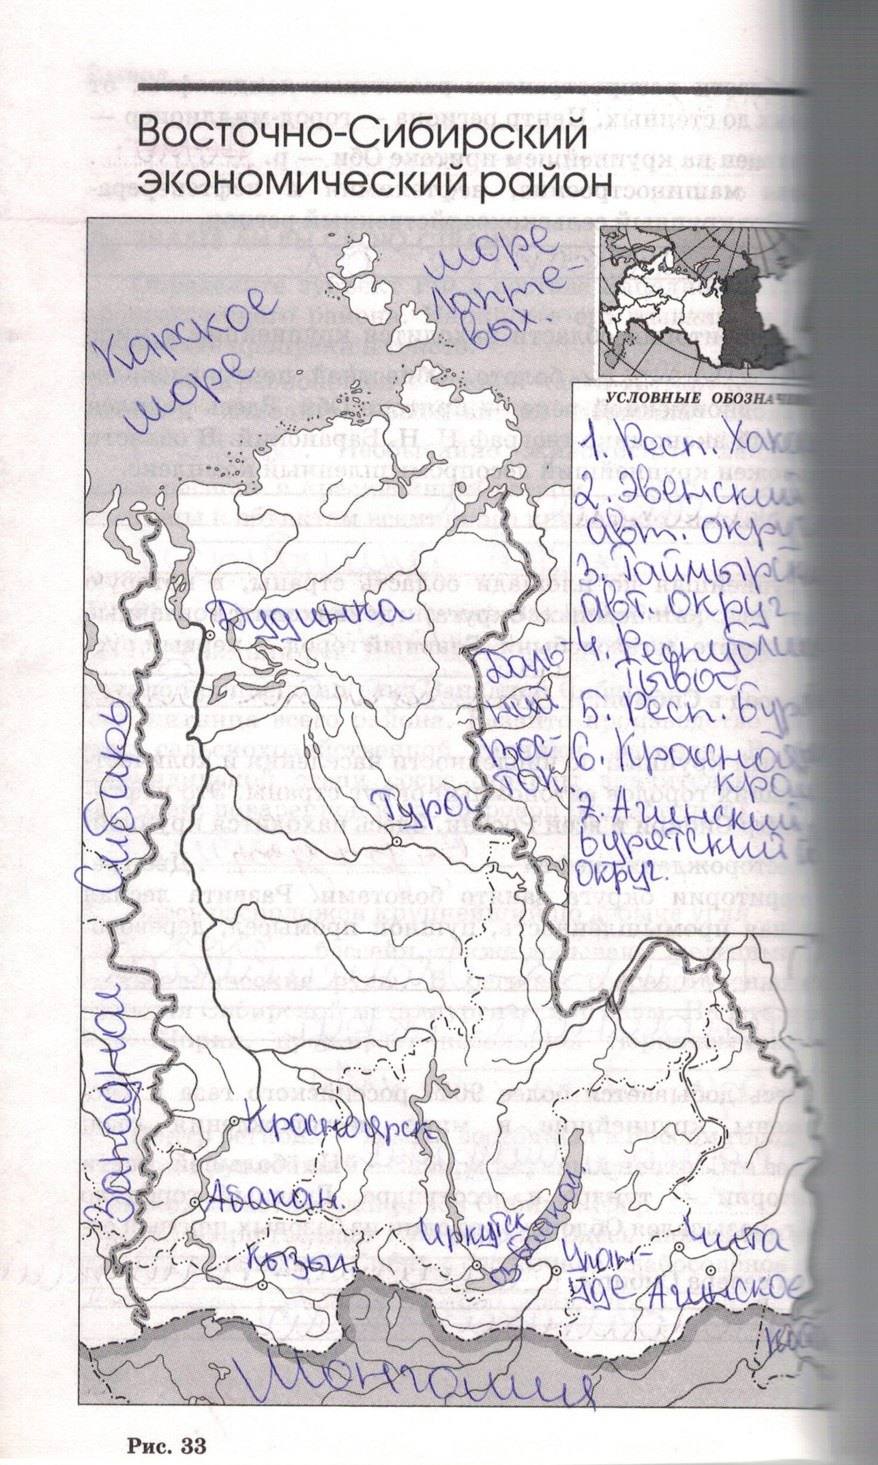 Восточно-Сибирский
экономический район
море
Лапте-
вых
Карское
море
УСЛОВНЫЕ ОБОЗНАЧ
1. Респ. Хака
2. Эвенский
авт. окру
3. Таймырс
авт. округ
4. Республи
Тыва
5. Респ. Бур
6. Красной
край
7. Агинский
Бурятский
округ.
Дудинка
Даль
ний
Вос-
ток
Тура
Западная Сибирь
Красноярск
Абакан.
Кызыл.
Иркутск
оз. Байкал
Улан-
Удэ
Чита
Агинское
Монголия
Рис. 33